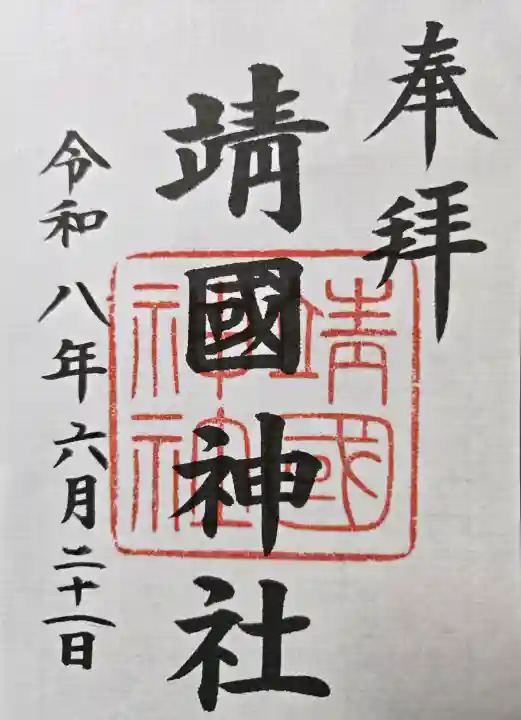 奉拝
靖國神社
靖國
神社
令和八年六月二十一日